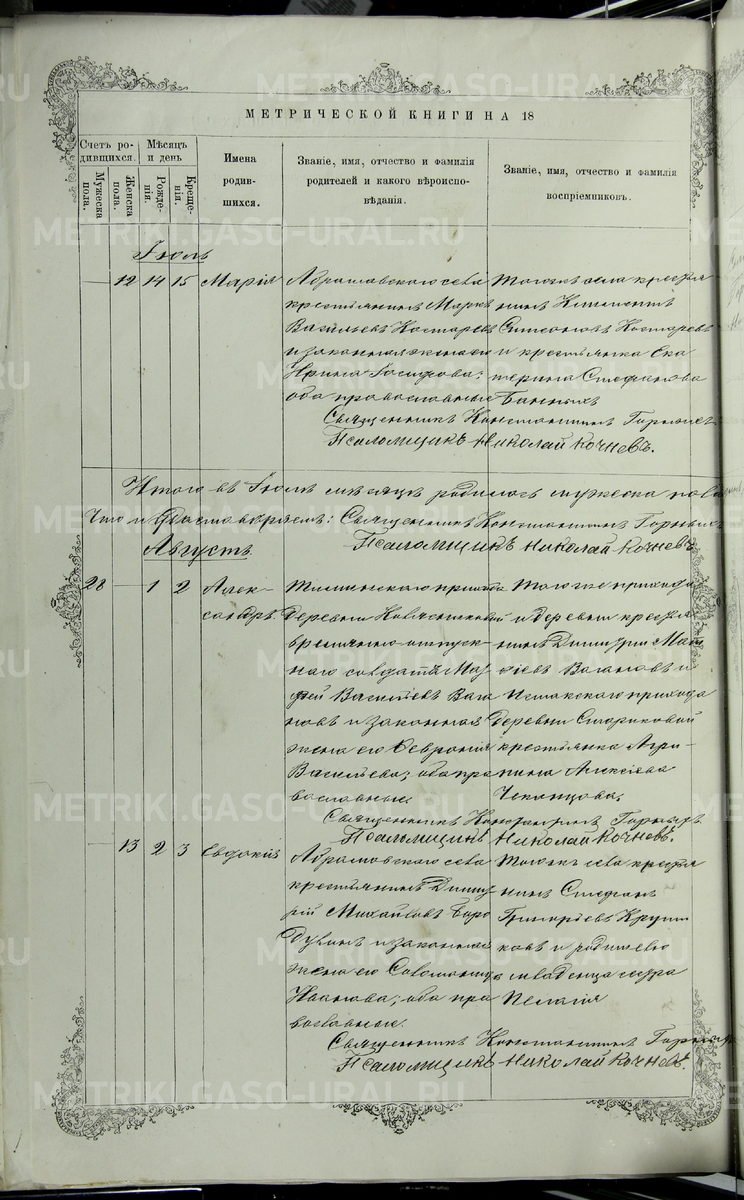 МЕТРИЧЕСКОЙ КНИГИ НА 18
Счетъ родившихся.
Мужеска пола.
Женска пола.
Мѣсяцъ и день
Рожденія.
Крещенія.
Имена родившихся.
Званіе, имя, отчество и фамилія родителей и какого вѣроисповѣданія.
Званіе, имя, отчество и фамилія воспріемниковъ.
Іюль
12 14 15 Марія
Абрамовскаго села
крестьянинъ Маркъ
Васильевъ Костаревъ
и законная жена его
Ирина Іосифова;
оба православные
Тогожъ села крестья
нинъ Климентъ
Симеоновъ Костаревъ
и крестьянка Ека
терина Стефанова
Банныхъ
Священникъ Константинъ
Псаломщикъ Николай Кочневъ.
Итого въ Іюлѣ мѣсяцѣ родилось мужеска пола
Что и удостовѣряемъ: Священникъ Константинъ
Псаломщикъ Николай Кочневъ
Августъ
28 — 1 2 Алек-
сандръ.
прихода
деревни
временно-отпуск-
наго солдатъ Мат
фей Васильевъ Вага
новъ и законная
жена его Феврония
Васильева; оба пра
вославные
Тогоже прихода
и деревни крестья
нинъ Димитрій Мат
фіевъ Вагановъ и
прихода
деревни Стариковой
крестьянка Агри-
пина Алексіева
Священникъ Константинъ
Псаломщикъ Николай Кочневъ.
— 13 2 3 Евдокія
Абрамовскаго села
крестьянинъ Димит
рій Михайловъ Боро
дулинъ и законная
жена его Соломонія
Иванова; оба пра
вославные.
Тогожъ села крестья
нинъ Стефанъ
Григорьевъ
и родителевъ
младенца сестра
Пелагія
Священникъ Константинъ
Псаломщикъ Николай Кочневъ.
METRIKI.GASO-URAL.RU